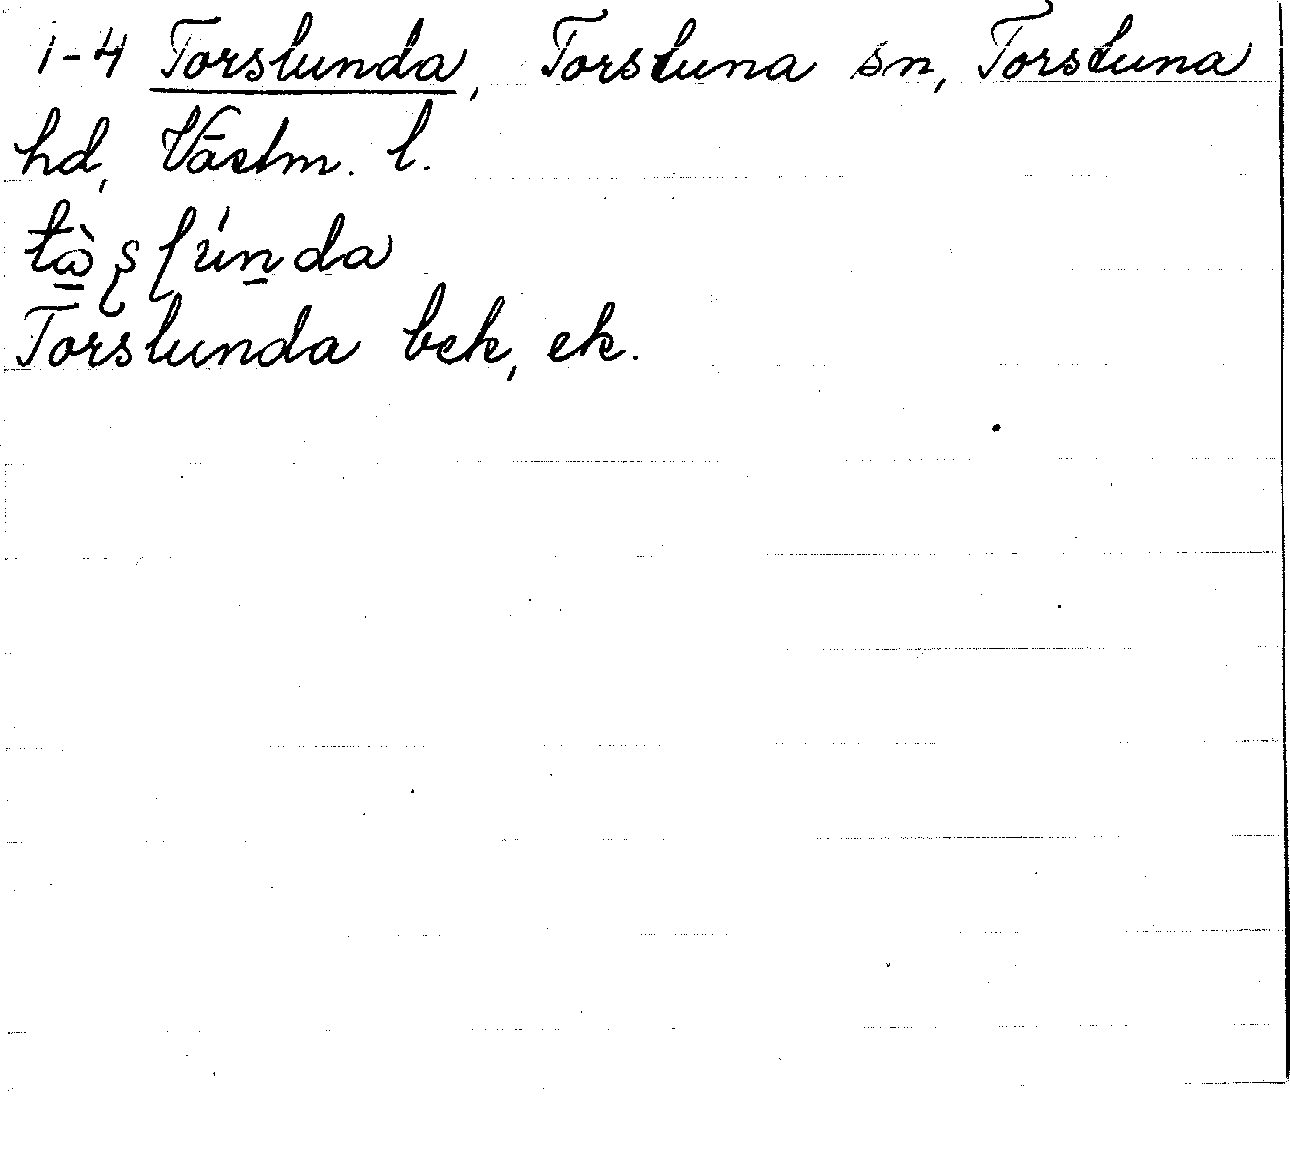 1-4 Torslunda, Torstuna sn, Torstuna
hd, Västm. l.
tàʂɭúnda
Torslunda bek, ek.